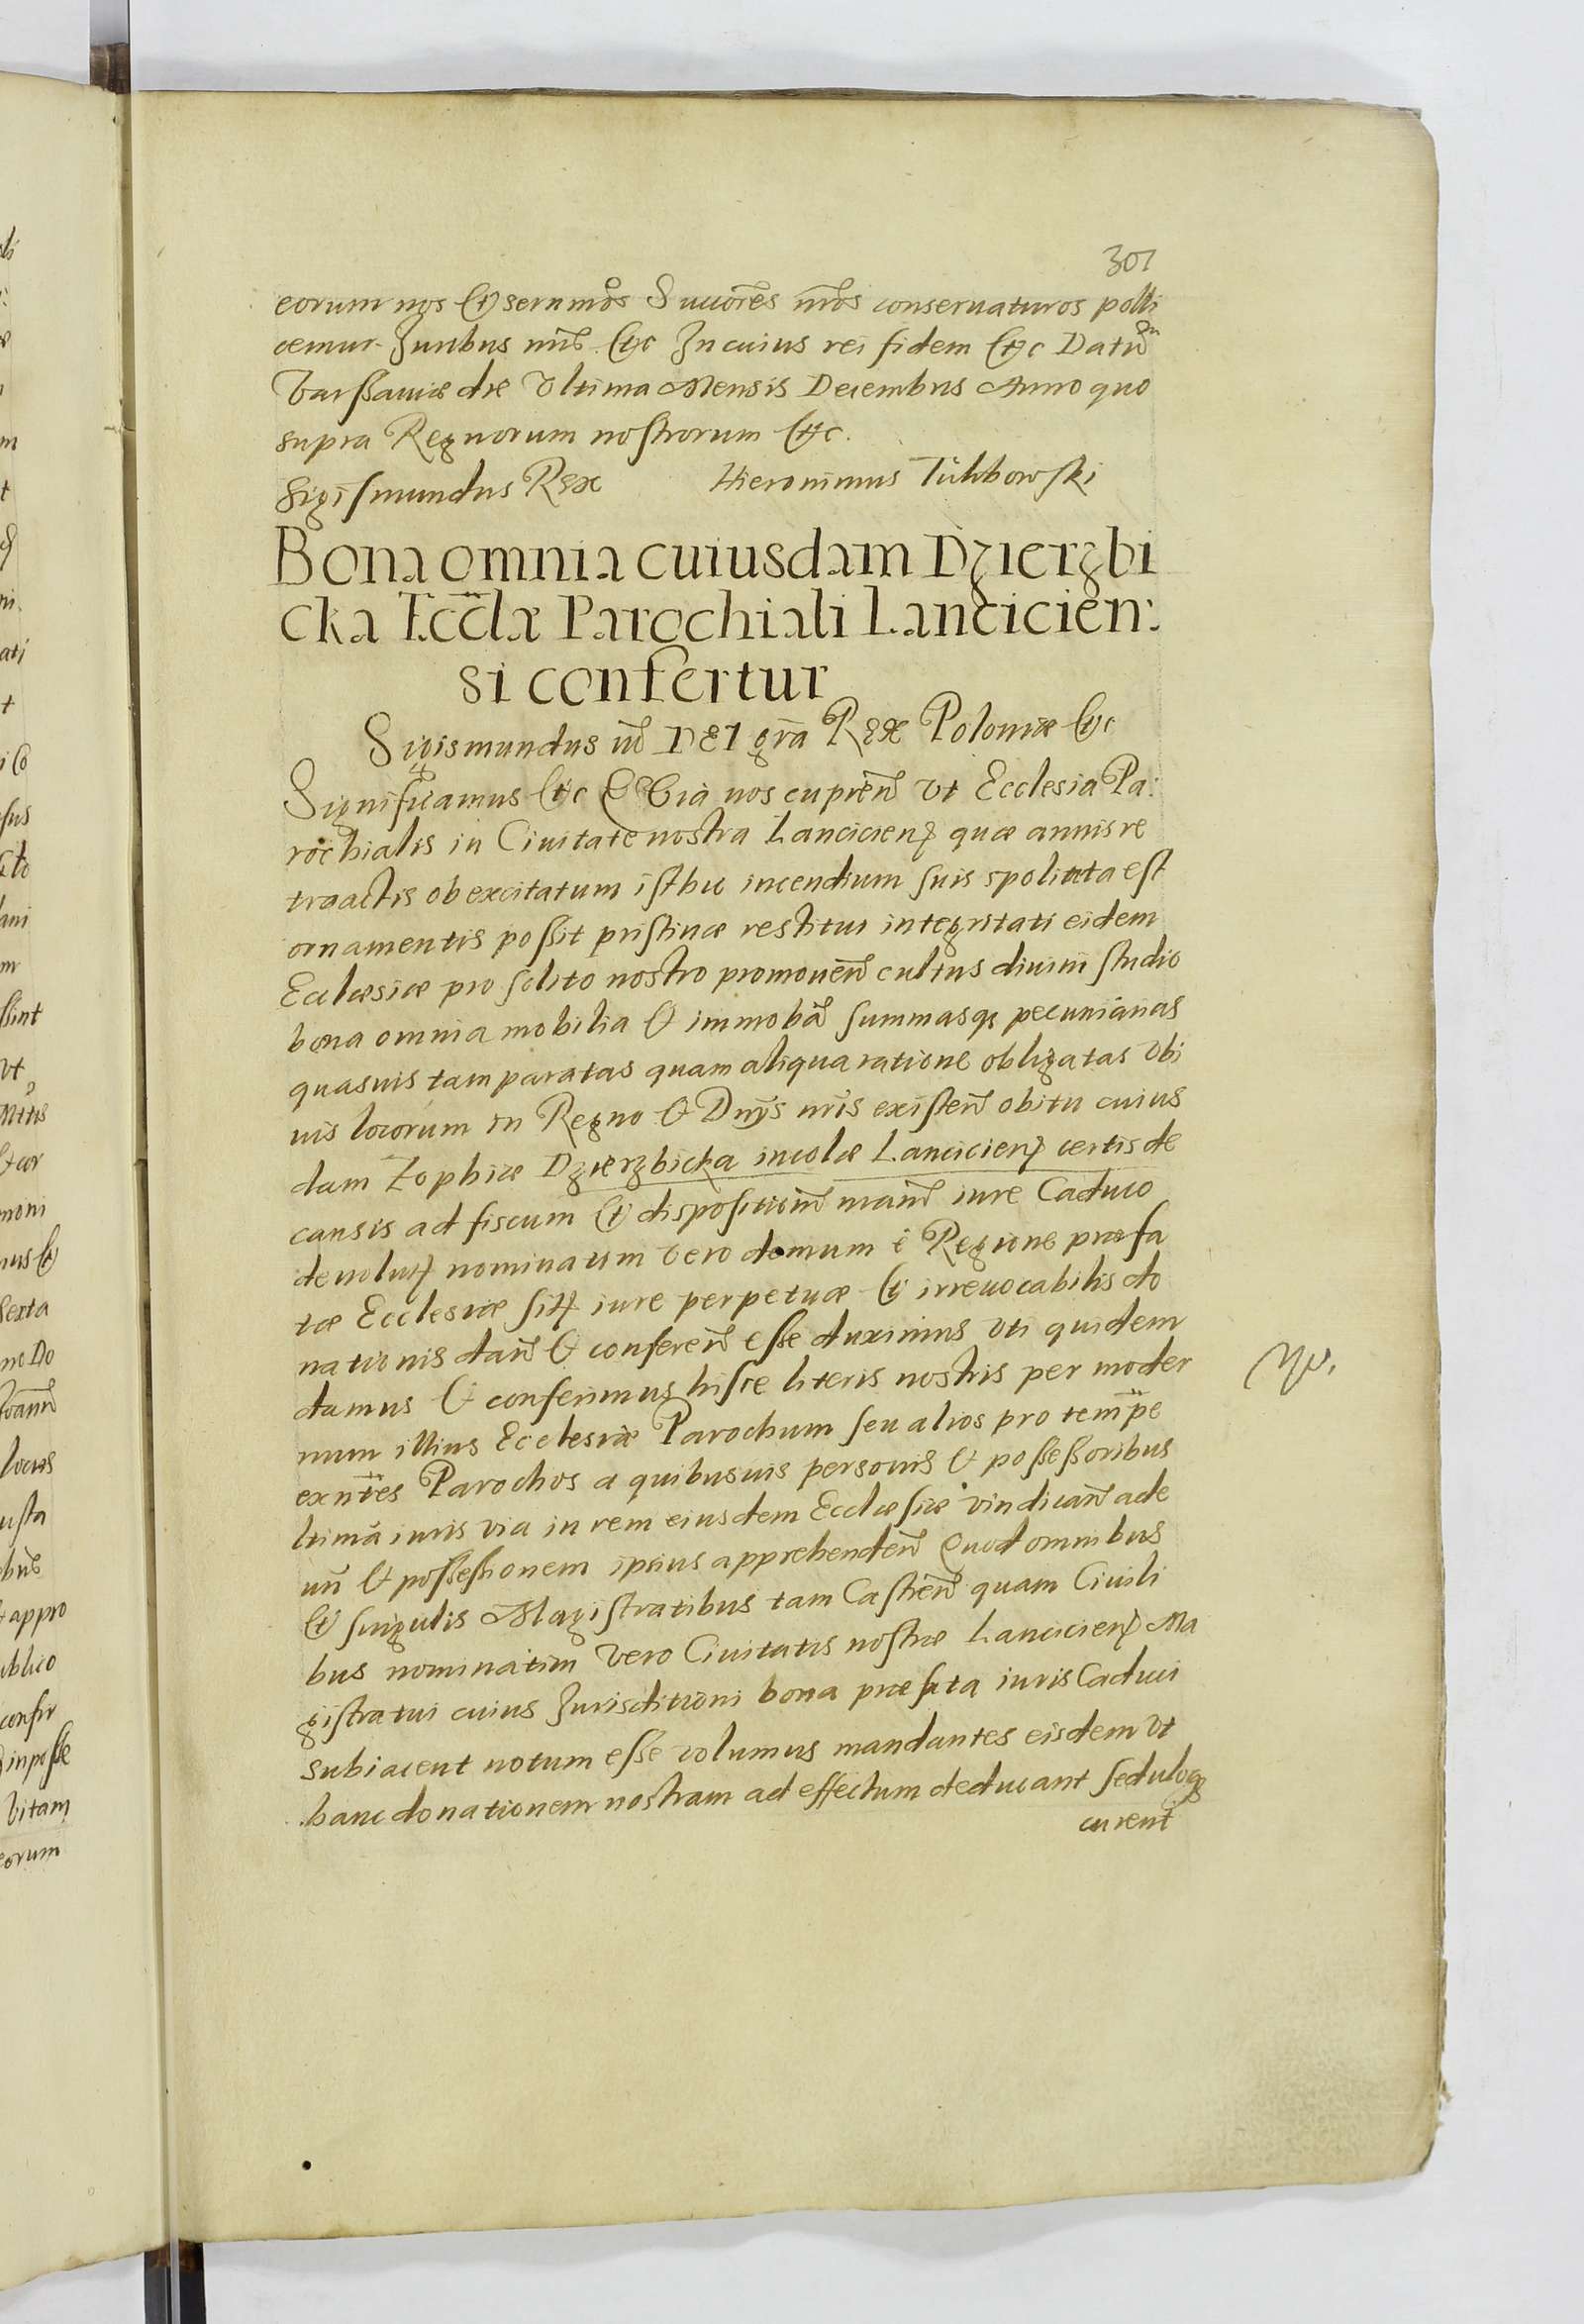 301
eorum nos et sernmos Succores nr̄os conseruaturos polli
cemur Juribus nris etc In cuius rei fidem etc Datum
Varssauiæ die Vltima Mensis Decembris Anno quo
supra Regnorum nostrorum etc.
Sigismundus Rex Hieronimus
Bona omnia cuiusdam Dzierzbi
cka Eccl̄æ Parochiali Lancicien:
si confertur
Sigismundus DEI gr̄a Rex Poloniæ etc
Significamus etc Quia nos cupien̄ vt Ecclesia Pa:
rochialis in Ciuitate nostra Lancicien̄ quæ annis re
troactis ob excitatum isthic incendium suis spoliata est
ornamentis possit pristinæ restitui integritati eidem
Ecclæsiæ pro solito nostro promouen̄ cultus diuini studio
bona omnia mobilia et immobil̄ summasq; pecuniarias
quasuis tam paratas quam aliqua ratione obligatas vbi
uis locorum in Regno et Dnijs nris existen̄ obitu cuius
dam Zophiæ Dzierzbicka incolæ Lancicien̄ certis de
causis ad fiscum et disposition̄ nram̄ iure Caduco
deuolut̄ nominatim vero domum è Regione præfa
tæ Ecclesiæ sit̄ iure perpetuæ et irreuocabilis do
nationis dan̄ et conferen̄ esse duximus vti quidem
damus et conferimus hisce literis nostris per moder
num illius Ecclesiæ Parochum seu alios pro temp̄e
exn̄tes Parochos a quibusuis personis et possessoribus
ltima iuris via in rem eiusdem Ecclæsiæ vindican̄ ade
un̄ et possessionem ipsius apprehenden̄ Quod omnibus
et singulis Magistratibus tam Castren̄ quam Ciuili
bus nominatim vero Ciuitatis nostræ Lancicien̄ Ma
gistratui cuius Jurisditioni bona præfata iuris Caduci
subiacent notum esse volumus mandantes eisdem vt
hanc donationem nostram ad effectum deducant seduloq;
curent